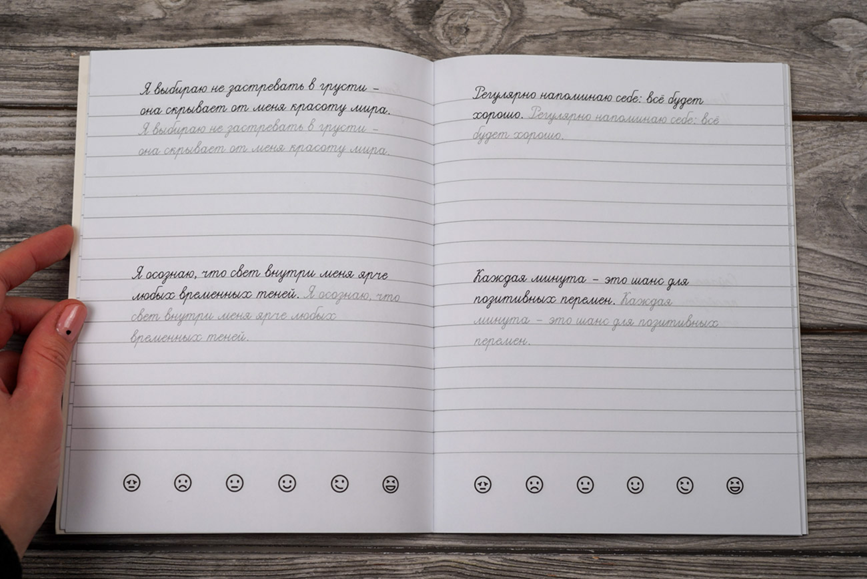 Я выбираю не застревать в грусти –
она скрывает от меня красоту мира.
Я выбираю не застревать в грусти –
она скрывает от меня красоту мира.
Я осознаю, что свет внутри меня ярче
любых временных теней. Я осознаю, что
свет внутри меня ярче любых
временных теней.
Регулярно напоминаю себе: всё будет
хорошо. Регулярно напоминаю себе: всё
будет хорошо.
Каждая минута – это шанс для
позитивных перемен. Каждая
минута – это шанс для позитивных
перемен.